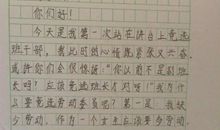 你们好！
今天是我第一次站在讲台上竞选
班干部，我此时的心情既紧张又兴奋。
或许你们会很惊讶：“你以前不是副班
长吗？应该竞选班长才对呀！”我为什
么要竞选劳动委员呢？第一是，我状
少劳动，作为一个女生应该要多劳动